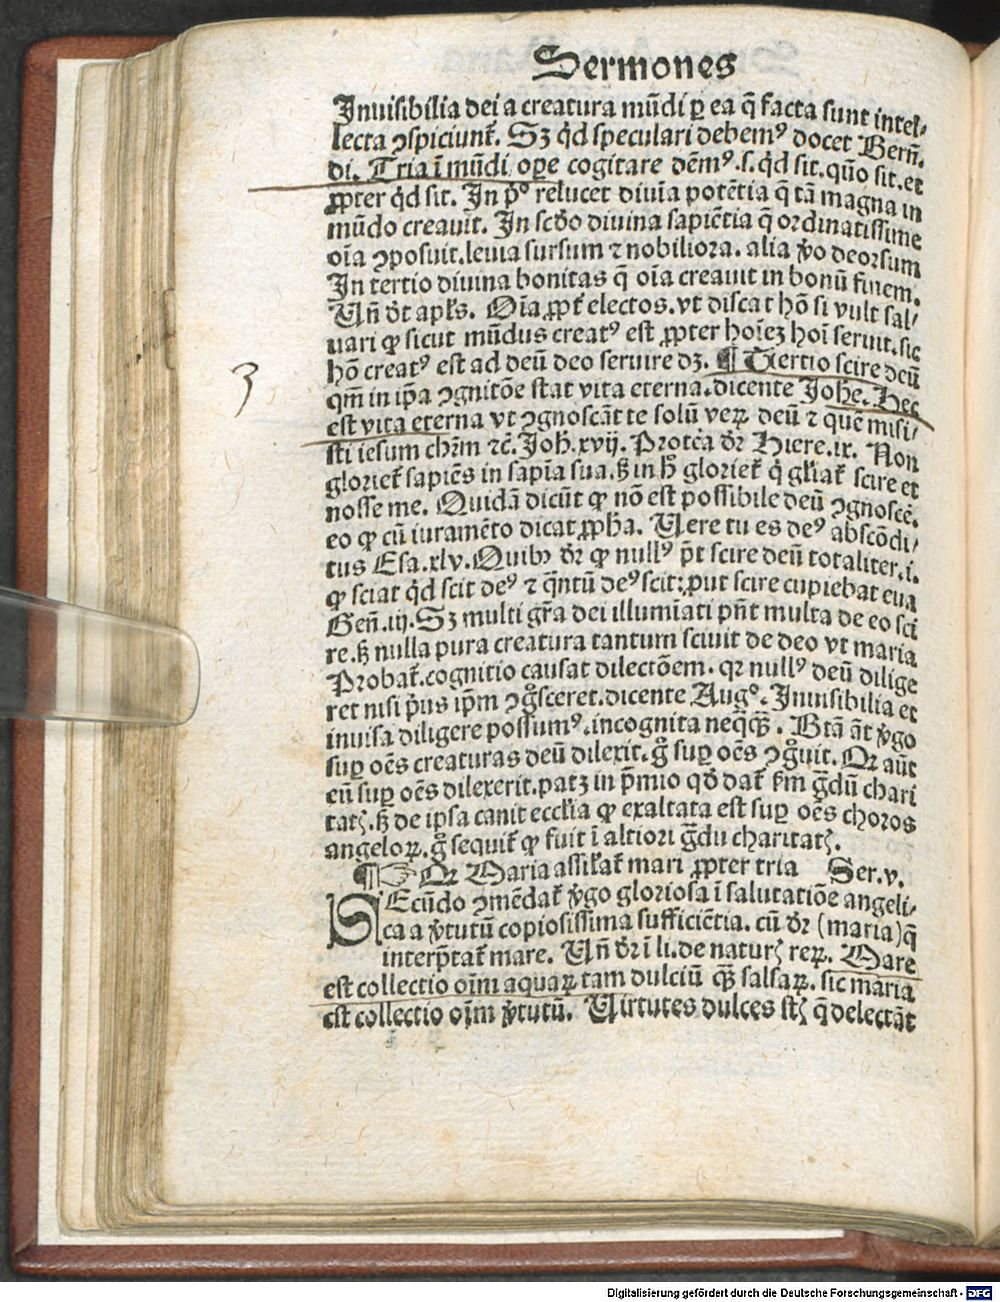 Sermones
Inuisibilia dei a creatura mūdi ꝑ ea q̄ facta sunt intel⸗
lecta ꝯspiciunt̄. Sꝫ qd̄ speculari debemꝰ docet Bern̄.
di. Tria ī mūdi oꝑe cogitare dēmꝰ .s. qd̄ sit. quō sit. et
ꝓpter qd̄ sit. In pͦ relucet diuīa potētia q̄ tā magna in
mūdo creauit. In scd̄o diuina sapiētia q̄ ordinatissime
oīa ꝯposuit. leuia sursum ⁊ nobiliora. alia v̄o deorsum
In tertio diuina bonitas q̄ oīa creauit in bonū finem.
Vn̄ dt̄ apl̄s. Oīa ꝓpt̄ electos. vt discat hō si vult sal⸗
uari ꝙ sicut mūdus creatꝰ est ꝓpter hoīeꝫ hoī seruit. sic
hō creatꝰ est ad deū deo seruire dꝫ. ¶ Tertio scire deū
qm̄ in ip̄a ꝯgnitōe stat vita eterna. dicente Joh̄e. Hec
est vita eterna vt ꝯgnoscāt te solū veꝝ deū ⁊ quē misi⸗
sti iesum chr̄m ⁊c̄. Joh̄. xvij. Protea dr̄ Hiere. ix. Non
gloriet̄ sapiēs in sapīa sua. sꝫ in h̄ gloriet̄ q̄ gl̄iat̄ scire et
nosse me. Quidā dicūt ꝙ nō est possibile deū ꝯgnoscē.
eo ꝙ cū iuramēto dicat ꝓph̄a. Vere tu es deꝰ abscōdi⸗
tus Esa. xlv. Quibꝫ dr̄ ꝙ nullꝰ pt̄ scire deū totaliter .i.
ꝙ sciat qd̄ scit deꝰ ⁊ q̄ntū deꝰ scit: ꝓut scire cupiebat eua
Gen̄. iij. Sꝫ multi gr̄a dei illumīati pn̄t multa de eo sci
re. sꝫ nulla pura creatura tantum sciuit de deo vt maria
Probat̄. cognitio causat dilectōem. qr nullꝰ deū dilige
ret nisi p̄us ip̄m ꝯgͦsceret. dicente Augͦ. Inuisibilia et
inuisa diligere possumꝰ. incognita neq̄q̄ꝫ. Btā āt v̄go
suꝑ oēs creaturas deū dilexit. gͦ suꝑ oēs ꝯgͦuit. Qr aūt
eū suꝑ oēs dilexerit. patꝫ in p̄mio qd̄ dat̄ fm̄ gͣdū chari
tatꝭ. sꝫ de ipsa canit eccl̄ia ꝙ exaltata est suꝑ oēs choros
angeloꝝ. gͦ sequit̄ ꝙ fuit ī altiori gͣdu charitatꝭ.
¶☞ Qr Maria assil̄at̄ mari ꝓpter tria Ser. v.
SEcūdo ꝯmēdat̄ v̄go gloriosa ī salutatiōe angeli⸗
ca a v̄tutū copiosissima sufficiētia. cū dr̄ (maria) q̄
interp̄tat̄ mare. Vn̄ dr̄ ī li. de naturꝭ reꝝ. Mare
est collectio oīm aquaꝝ tam dulciū q̄ꝫ salsaꝝ. sic maria
est collectio oīm v̄tutū. Virtutes dulces st̄ꝭ q̄ delectāt
3
Digitalisierung gefördert durch die Deutsche Forschungsgemeinschaft - DFG